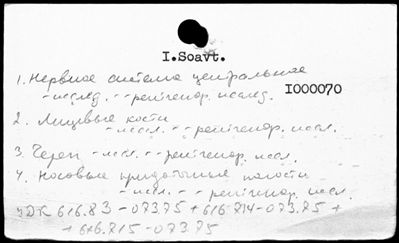 I.Soavt.
1. Нервное система центральное
- исслед. -- рентгенор. исслед.
I000070
2. Лицевые кости
- иссл. -- рентгенор. иссл.
3. Череп - иссл. -- рентгенор. иссл.
4. Носовые придаточные полости
- иссл. -- рентгенор. иссл.
УДК 616.83-073.75 + 616.714-073.75 +
+ 616.715-073.75